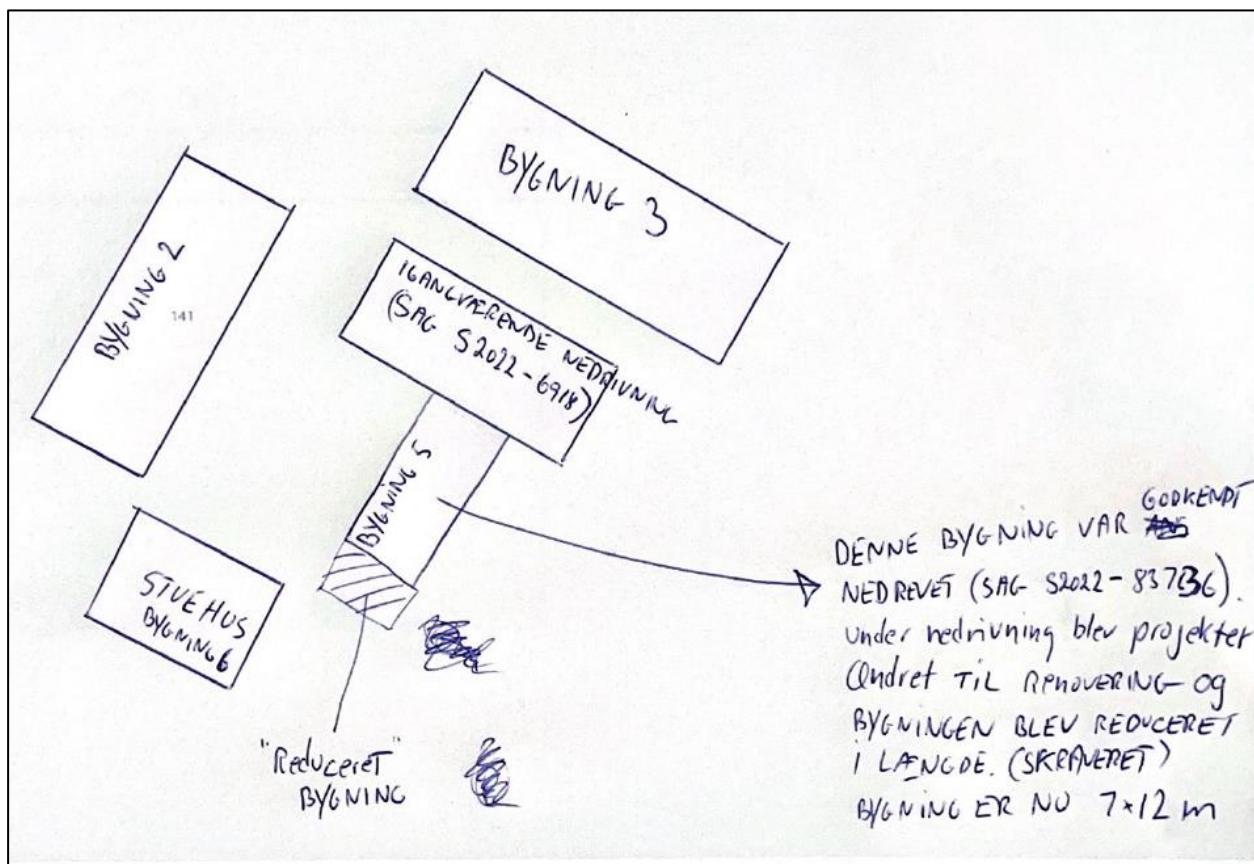 BYGNING 3
BYGNING 2
141
IGANGVÆRENDE NEDRIVNING
(SAG S2022-6918)
BYGNING 5
STUEHUS
BYGNING 6
"Reduceret"
BYGNING
DENNE BYGNING VAR GODKENDT
NEDREVET (SAG S2022-83736).
under nedrivning blev projektet
Ændret TIL RENOVERING - og
BYGNINGEN BLEV REDUCERET
I LÆNGDE. (SKRAVERET)
BYGNING ER NU 7x12 m